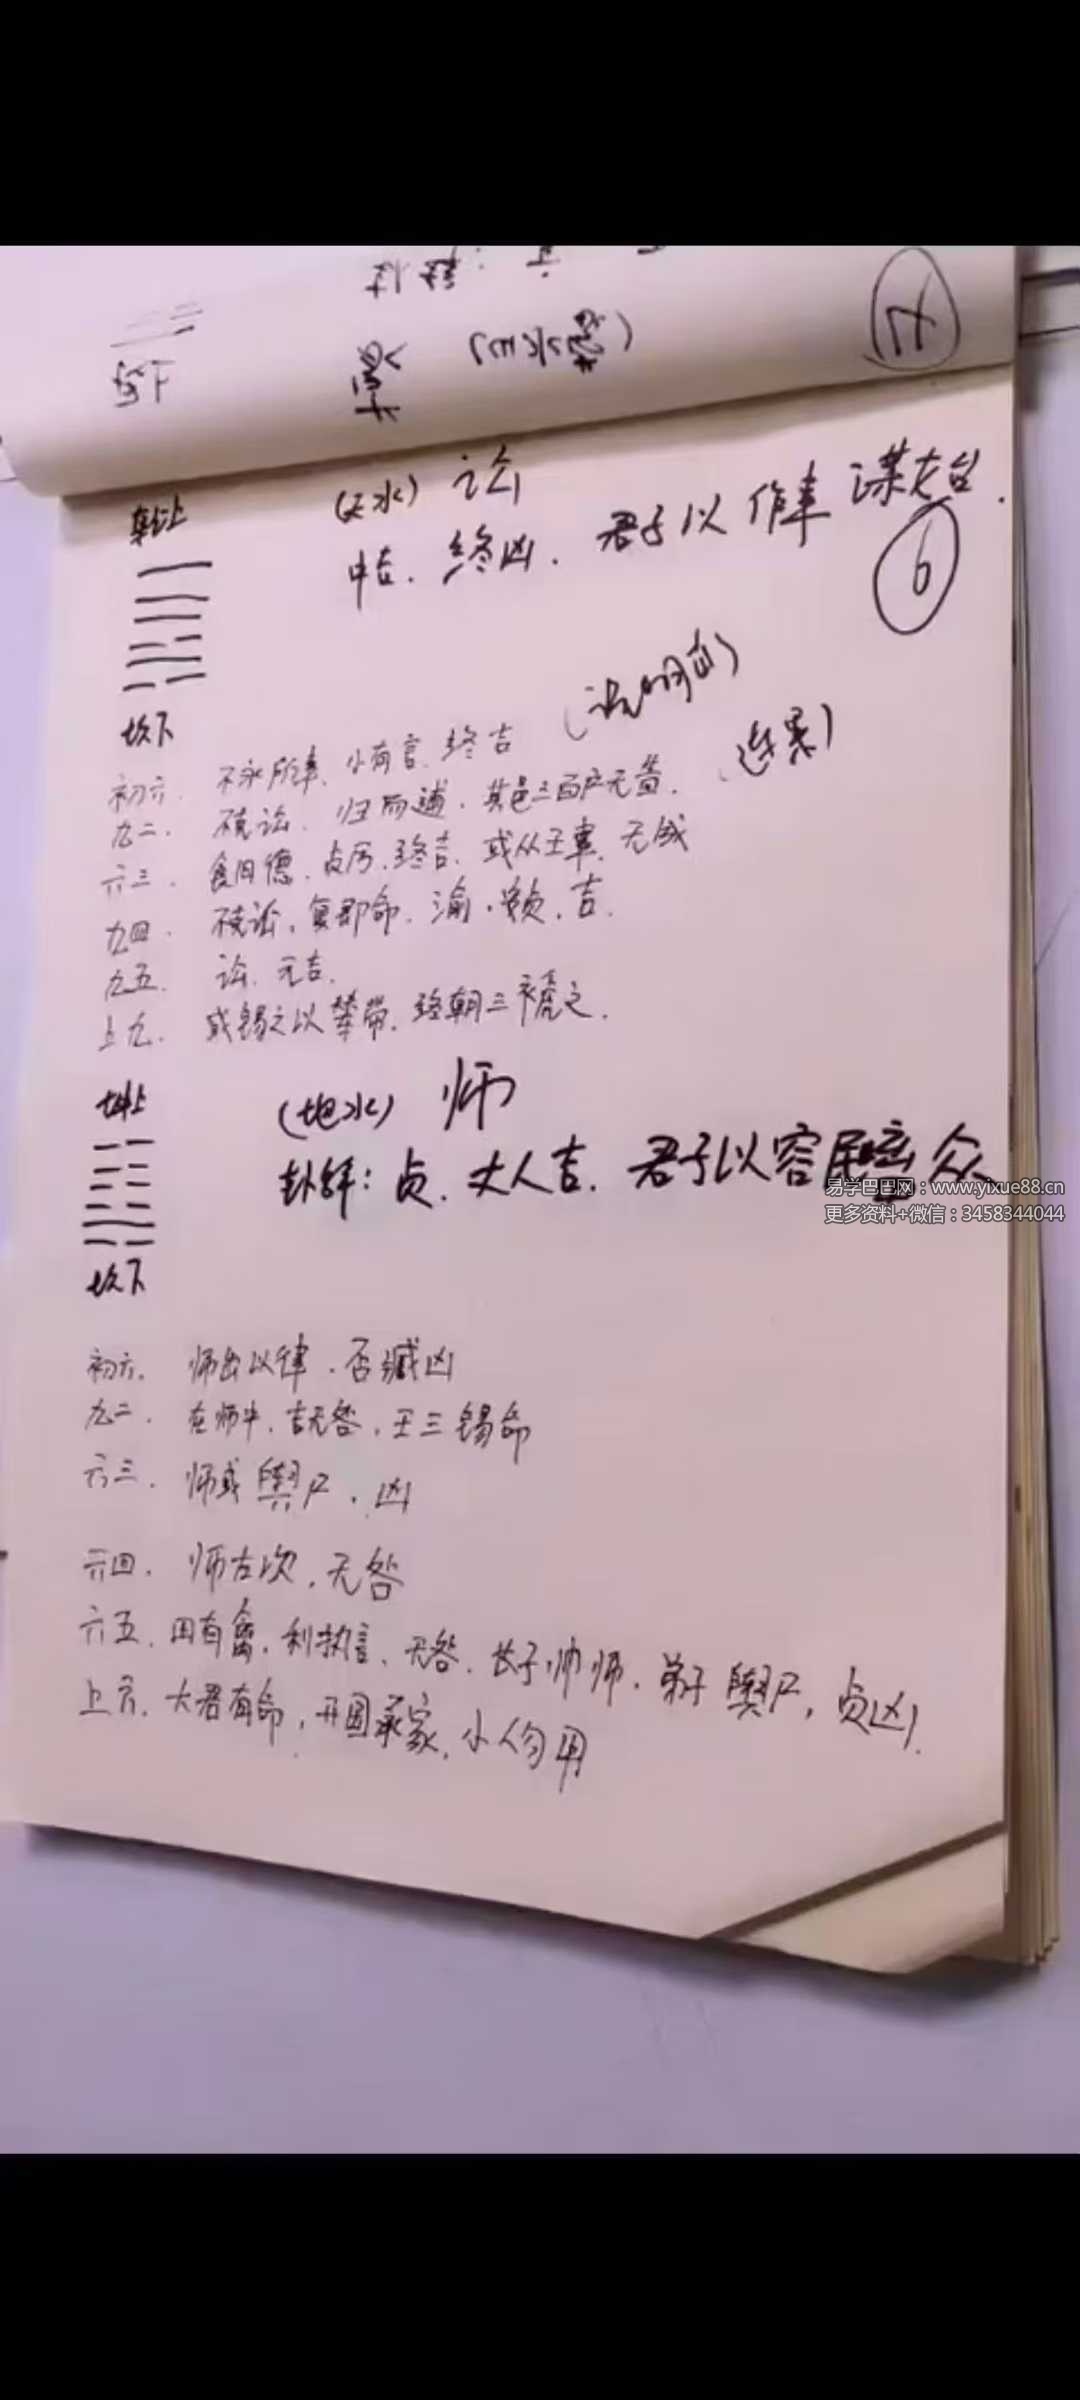 乾上
(天水) 讼
中吉．终凶．君子以作事谋大台．
6
坎下
初六．不永所事、小有言、终吉
九二．不克讼、归而逋．其邑三百户无眚． 连累)
六三．食旧德、贞厉、终吉．或从王事、无成
九四．不克讼．复即命．渝．安贞．吉．
九五．讼、元吉．
上九．或锡之以鞶带．终朝三褫之．
坤上
(地水) 师
卦辞：贞．丈人吉．君子以容民畜众
易学巴巴网：www.yixue88.cn
更多资料+微信：3458344044
坎下
初六．师出以律．否臧凶
九二．在师中．吉无咎．王三锡命
六三．师或舆尸．凶
六四．师左次．无咎
六五．田有禽．利执言、无咎．长子帅师．弟子舆尸，贞凶．
上六．大君有命，开国承家．小人勿用